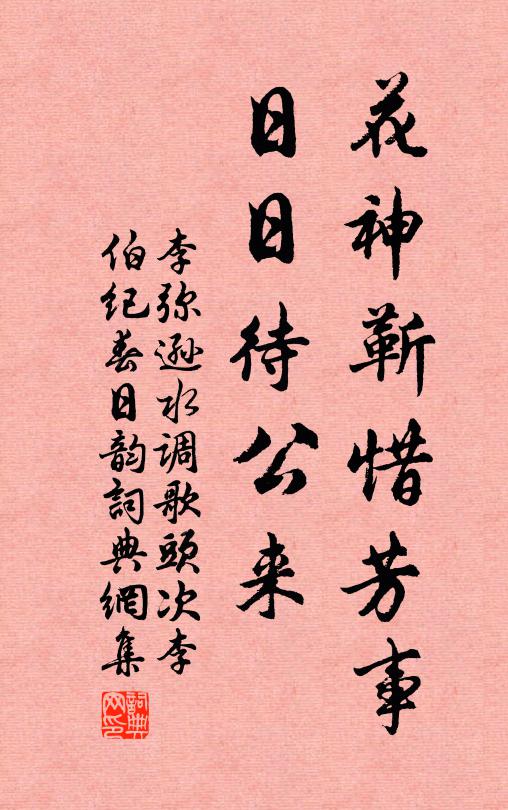 花神蘄惜芳事
日日待公来
李弥遜水调歌頭次李
伯纪春日韵詞典網集
詞典网印